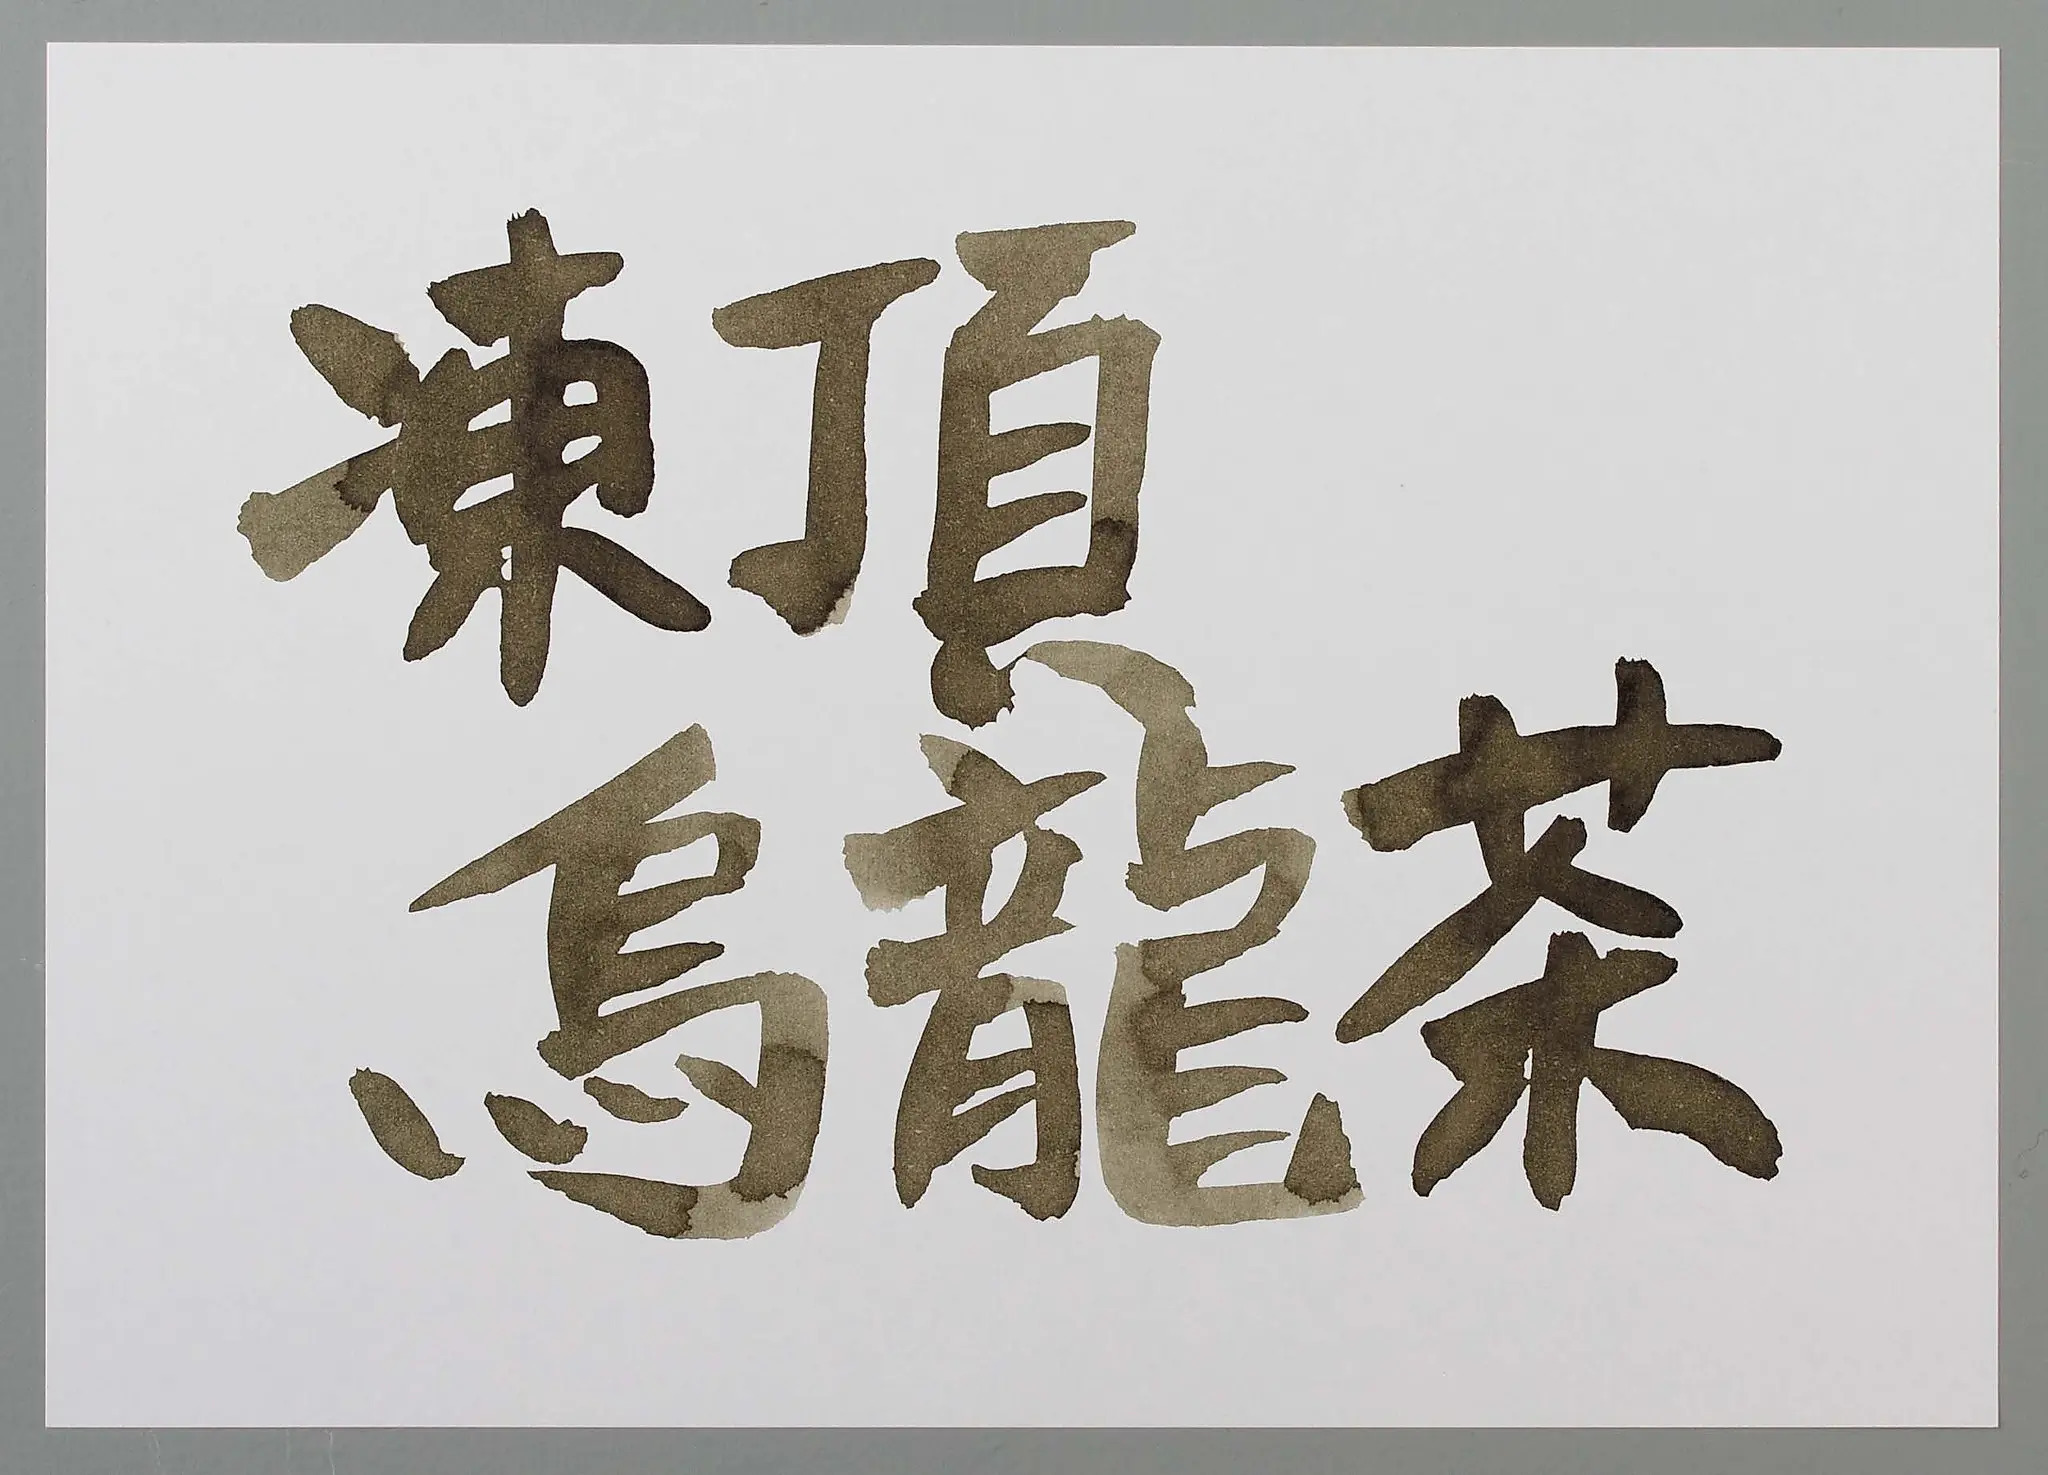 凍頂
烏龍茶